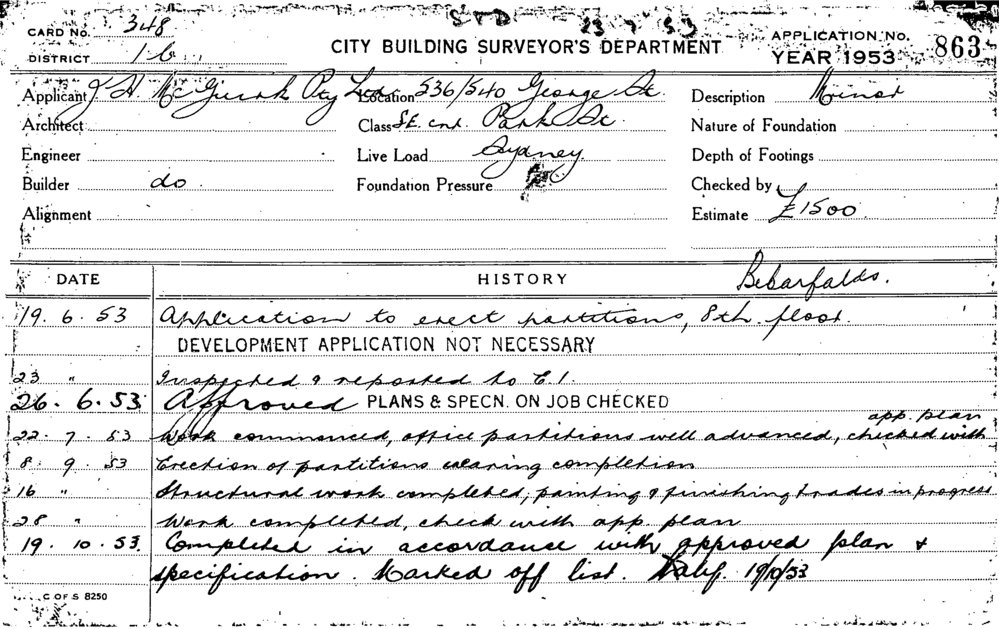 STD 23 7 53
CARD No. 348
DISTRICT 16
CITY BUILDING SURVEYOR'S DEPARTMENT
APPLICATION No. 863
YEAR 1953
Applicant J H McGurk Pty Ltd Location 536/540 George St. Description Minor
Architect Class S.E. cnr. Park St. Nature of Foundation
Engineer Live Load Sydney. Depth of Footings
Builder do Foundation Pressure Checked by
Alignment Estimate £1500
DATE HISTORY Bebarfalds.
19. 6. 53 Application to erect partitions, 8th. floor.
DEVELOPMENT APPLICATION NOT NECESSARY
23 " Inspected & reported to C.I.
26. 6. 53 Approved PLANS & SPECN. ON JOB CHECKED
app. plan
22. 7. 53 Work commenced, office partitions well advanced, checked with
8. 9. 53 Erection of partitions nearing completion
16 " Structural work completed, painting & finishing trades in progress
28 " Work completed, check with app. plan
19. 10. 53. Completed in accordance with approved plan &
specification. Marked off list. 19/10/53
C OF S 8250